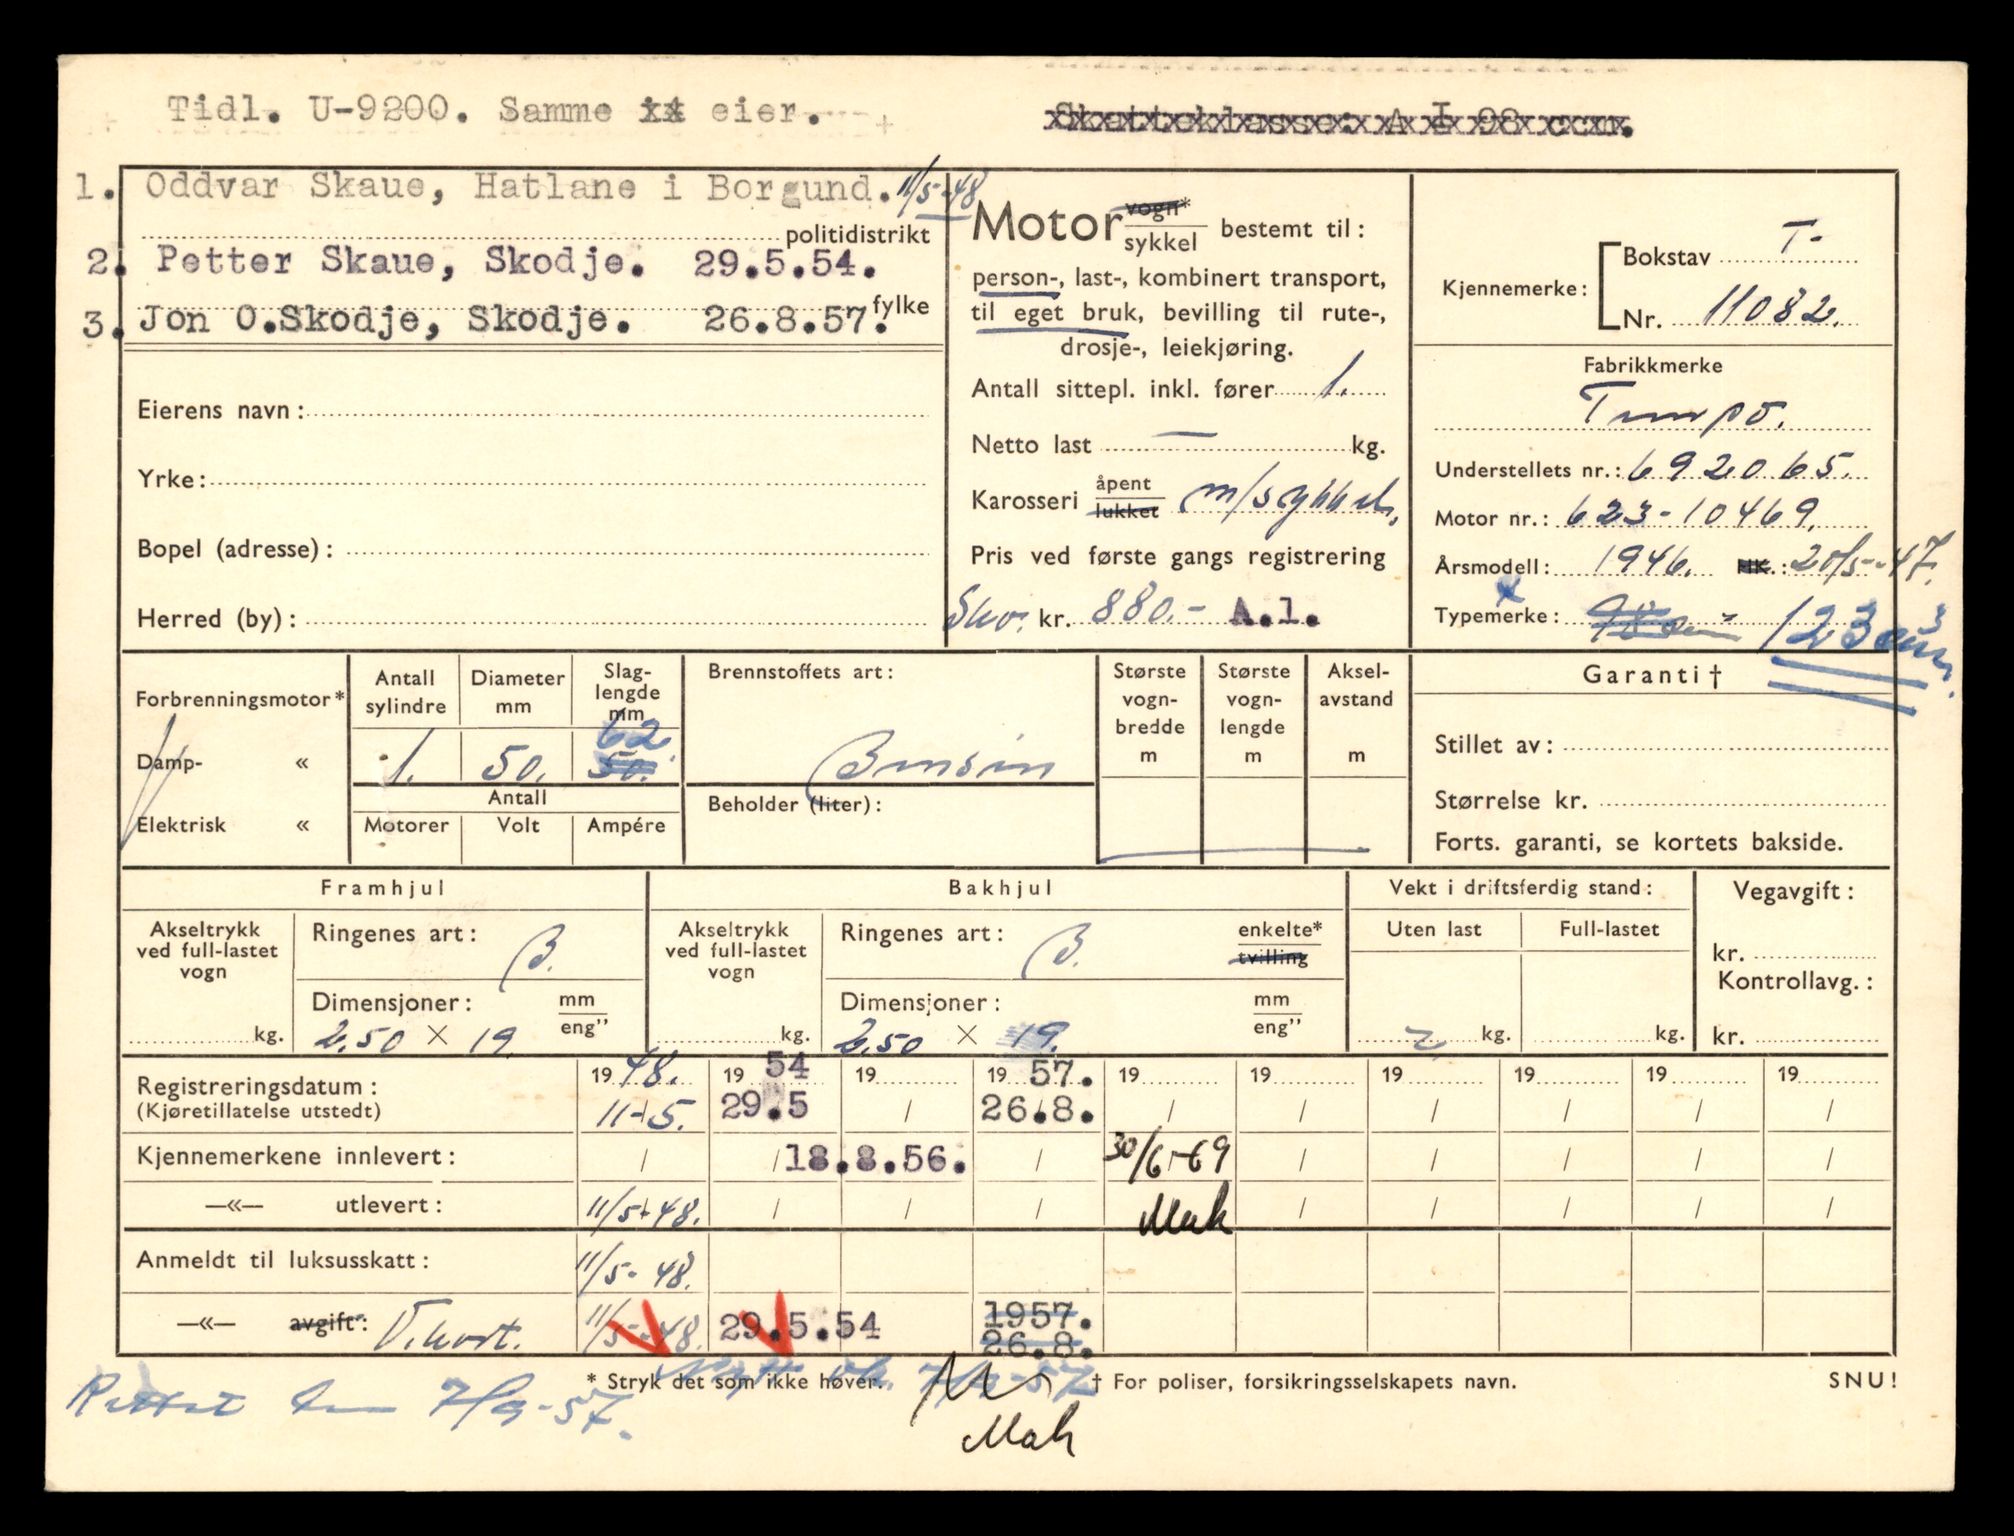 Tidl. U-9200. Samme eier.
Skatteklasse: A I 98 ccm.
1. Oddvar Skaue, Hatlane i Borgund. 11/5-48
politidistrikt
2. Petter Skaue, Skodje. 29.5.54.
fylke
3. Jon O.Skodje, Skodje. 26.8.57.
Eierens navn:
Yrke:
Bopel (adresse):
Herred (by):
Motor vogn* sykkel bestemt til:
person-, last-, kombinert transport,
til eget bruk, bevilling til rute-,
drosje-, leiekjøring.
Antall sittepl. inkl. fører 1.
Netto last — kg.
Karosseri åpent lukket m/sykkel.
Pris ved første gangs registrering
kr. 880.- A.1.
Kjennemerke: Bokstav T-
Nr. 11082.
Fabrikkmerke
Tempo.
Understellets nr.: 692065.
Motor nr.: 623-10469.
Årsmodell: 1946. HK.: 20/5-47.
Typemerke: 98 cm 123 cm³
Forbrenningsmotor*
Damp- «
Elektrisk «
Antall sylindre
1.
Diameter mm
50.
Slag-lengde mm
62
50.
Antall
Motorer Volt Ampére
Brennstoffets art:
Bensin
Beholder (liter):
Største vogn-bredde m
Største vogn-lengde m
Aksel-avstand m
Garanti †
Stillet av:
Størrelse kr.
Forts. garanti, se kortets bakside.
Framhjul
Akseltrykk ved full-lastet vogn
kg.
Ringenes art: B.
Dimensjoner: mm eng”
2.50 × 19
Bakhjul
Akseltrykk ved full-lastet vogn
kg.
Ringenes art: B. enkelte* tvilling
Dimensjoner: mm eng”
2.50 × 19.
Vekt i driftsferdig stand:
Uten last Full-lastet
kg. kg.
Vegavgift:
kr.
Kontrollavg.:
kr.
Registreringsdatum: 19 48. 19 54 19 19 57. 19 19 19 19 19 19
(Kjøretillatelse utstedt) 11/5. 29.5 / 26.8. / / / / / /
Kjennemerkene innlevert: / / 18.8.56. / 30/6-69 / / / / /
—«— utlevert: 11/5-48. / / / Mak / / / / /
Anmeldt til luksusskatt: 11/5-48.
—«— avgift*: V.kort. 11/5-48. 29.5.54 1957. 26.8.
* Stryk det som ikke høver. 7/9-57 † For poliser, forsikringsselskapets navn. SNU!
Rettet 7/9-57.
Mak